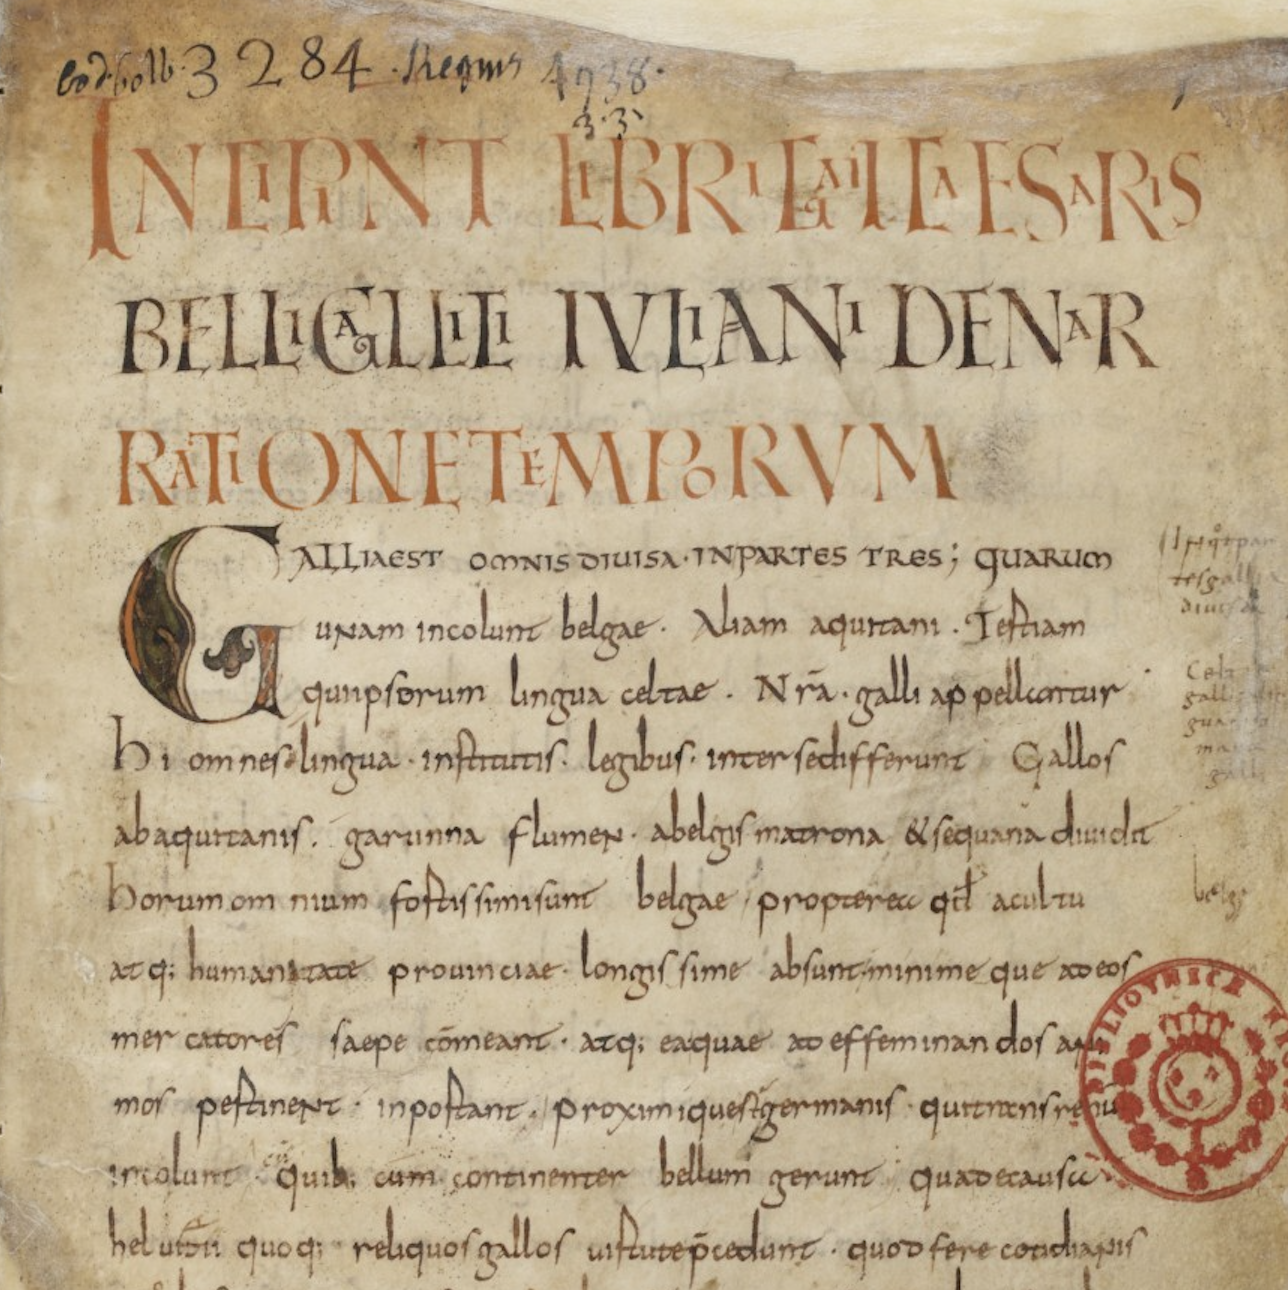 Cod. Colb. 3284. Regius
3.3.
INCIPIUNT LIBRI GAII CAESARIS
BELLI GALLICI IVLIANI DENAR
RATIONE TEMPORVM
GALLIA EST OMNIS DIUISA · INPARTES TRES; QUARUM
unam incolunt belgae · Aliam aquitani · Tertiam
quiipsorum lingua celtae · Nrā · galli appellantur
Hi omnes lingua · institutis · legibus · inter sedifferunt Gallos
abaquitanis · garunna flumen · abelgis matrona & sequana diuidit
horum omnium fortissimi sunt belgae propterea qđ acultu
atq; humanitate prouinciae · longissime absunt · minime que adeos
mercatores saepe cōmeant · atq; eaquae adeffeminandos ani
mos pertinent · inportant · proximique s̄ germanis · quitransrenum
incolunt quib; cum continenter bellum gerunt quadecausa
heluetii quoq; reliquos gallos uirtutep̄cedunt · quod fere cotidianis
diuisa
belgę
BIBLIOTHECA